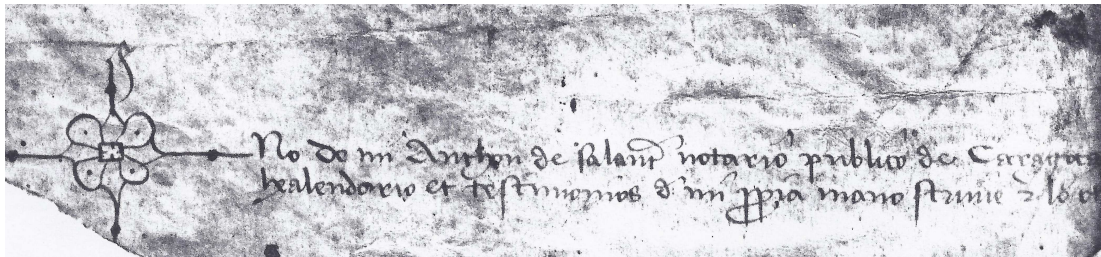 No de mi Anthon de salant notario publico de Caragoça
kalendario et testimonios d mi ppria mano scriuie z lo